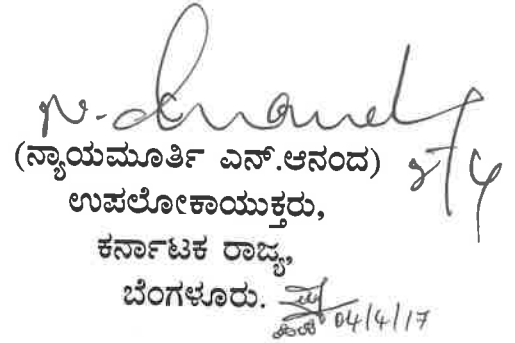 N. Anand
(ನ್ಯಾಯಮೂರ್ತಿ ಎನ್.ಆನಂದ)
ಉಪಲೋಕಾಯುಕ್ತರು,
ಕರ್ನಾಟಕ ರಾಜ್ಯ,
ಬೆಂಗಳೂರು.
04/4/17